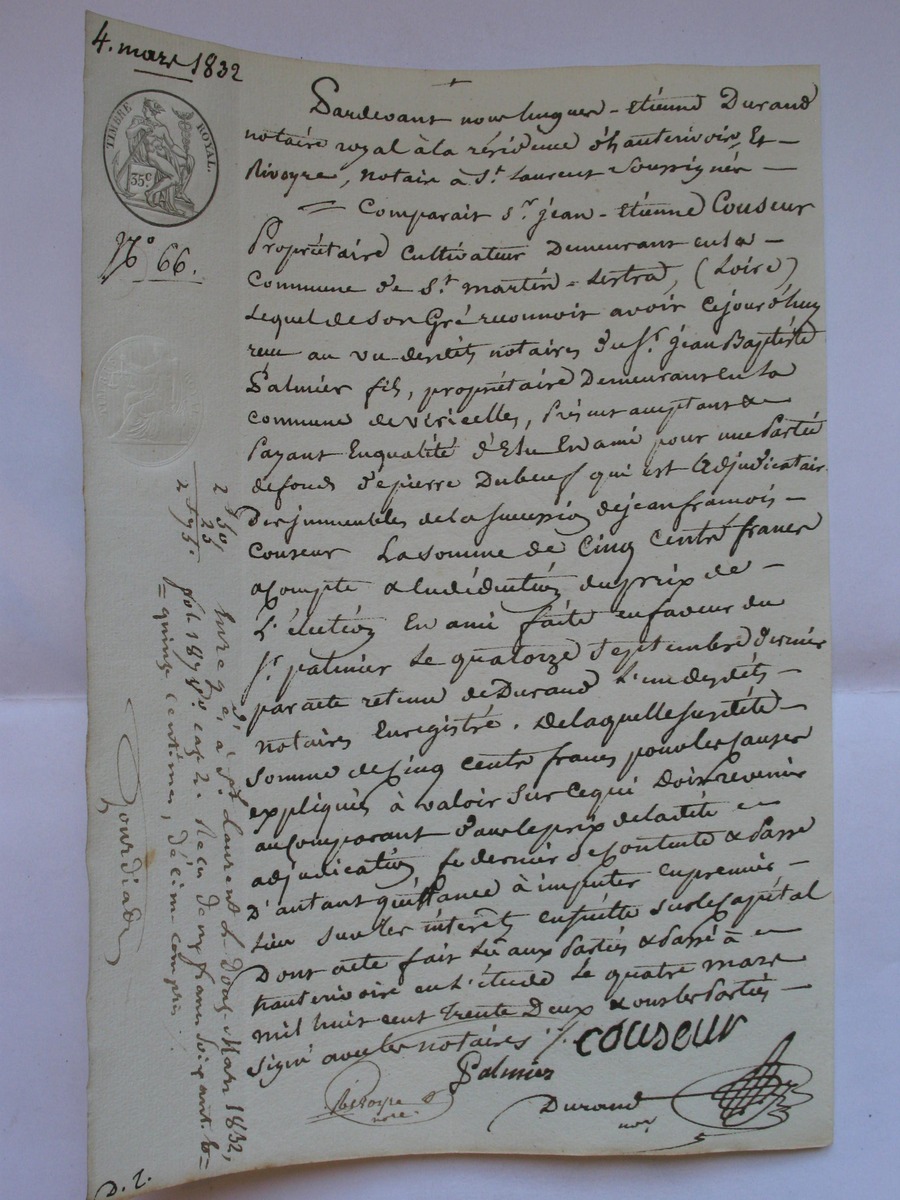 4. mars 1832
TIMBRE ROYAL.
35c
N° 66.
Pardevant nous hugues-étienne Durand
notaire royal à la résidence d'hauterivoire, Et
Rivoyre, notaire à St. Laurent Soussignés
Comparait sr. jean-étienne Couseur
Propriétaire Cultivateur Demeurant en la
Commune de St. martin-Lestra, (Loire)
Lequel de son Gré reconnoit avoir cejourd'huy
reçu au vu desdits notaires du Sr. jean Baptiste
Palmier fils, propriétaire Demeurant en la
commune de viricelles, Présent acceptant &
Payant En qualité d'Elu En ami pour une Partie
de fonds de pierre Dubeuf qui est l'Adjudicataire
Des immeubles de la succession de jean francois
Couseur La somme de Cinq Cents francs
acompte & en déduction du prix de
L'élection En ami faite en faveur du
Sr. palmier Le quatorze Septembre Dernier
par acte retenu de Durand L'un desdits
notaires Enregistré. De laquelle susdite
Somme de Cinq Cents francs pour les causes
expliquées à valoir sur ce qui Doit revenir
au Comparant dans le prix de ladite
adjudication ce dernier se contente & Passe
D'autant quittance à imputer en premier
Lieu sur les intérêts ensuitte sur le Capital
Dont acte fait Lu aux Parties & Passé à
hauterivoire en L'étude Le quatre mars
mil huit cent trente Deux & ont les Parties
signé avec les notaires ./.
couseur
Palmier
Rivoyre
nore.
Durand
nore
2 f 50
25
2 f 75c
Enregé. à St. Laurent Le Douze Mars 1832,
fol. 187 Vo. cas. 2. Reçu deux francs soixante
quinze centimes, décime compris.
Gourdiat
D. L.